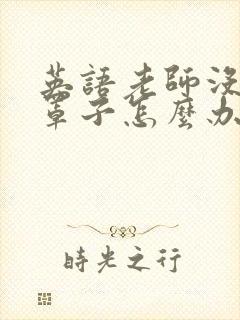 英語老師沒
罩子怎麼办
時光之行